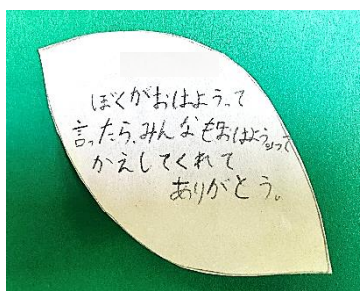 ぼくがおはようって
言ったら、みんなもおはようって
かえしてくれて
ありがとう。